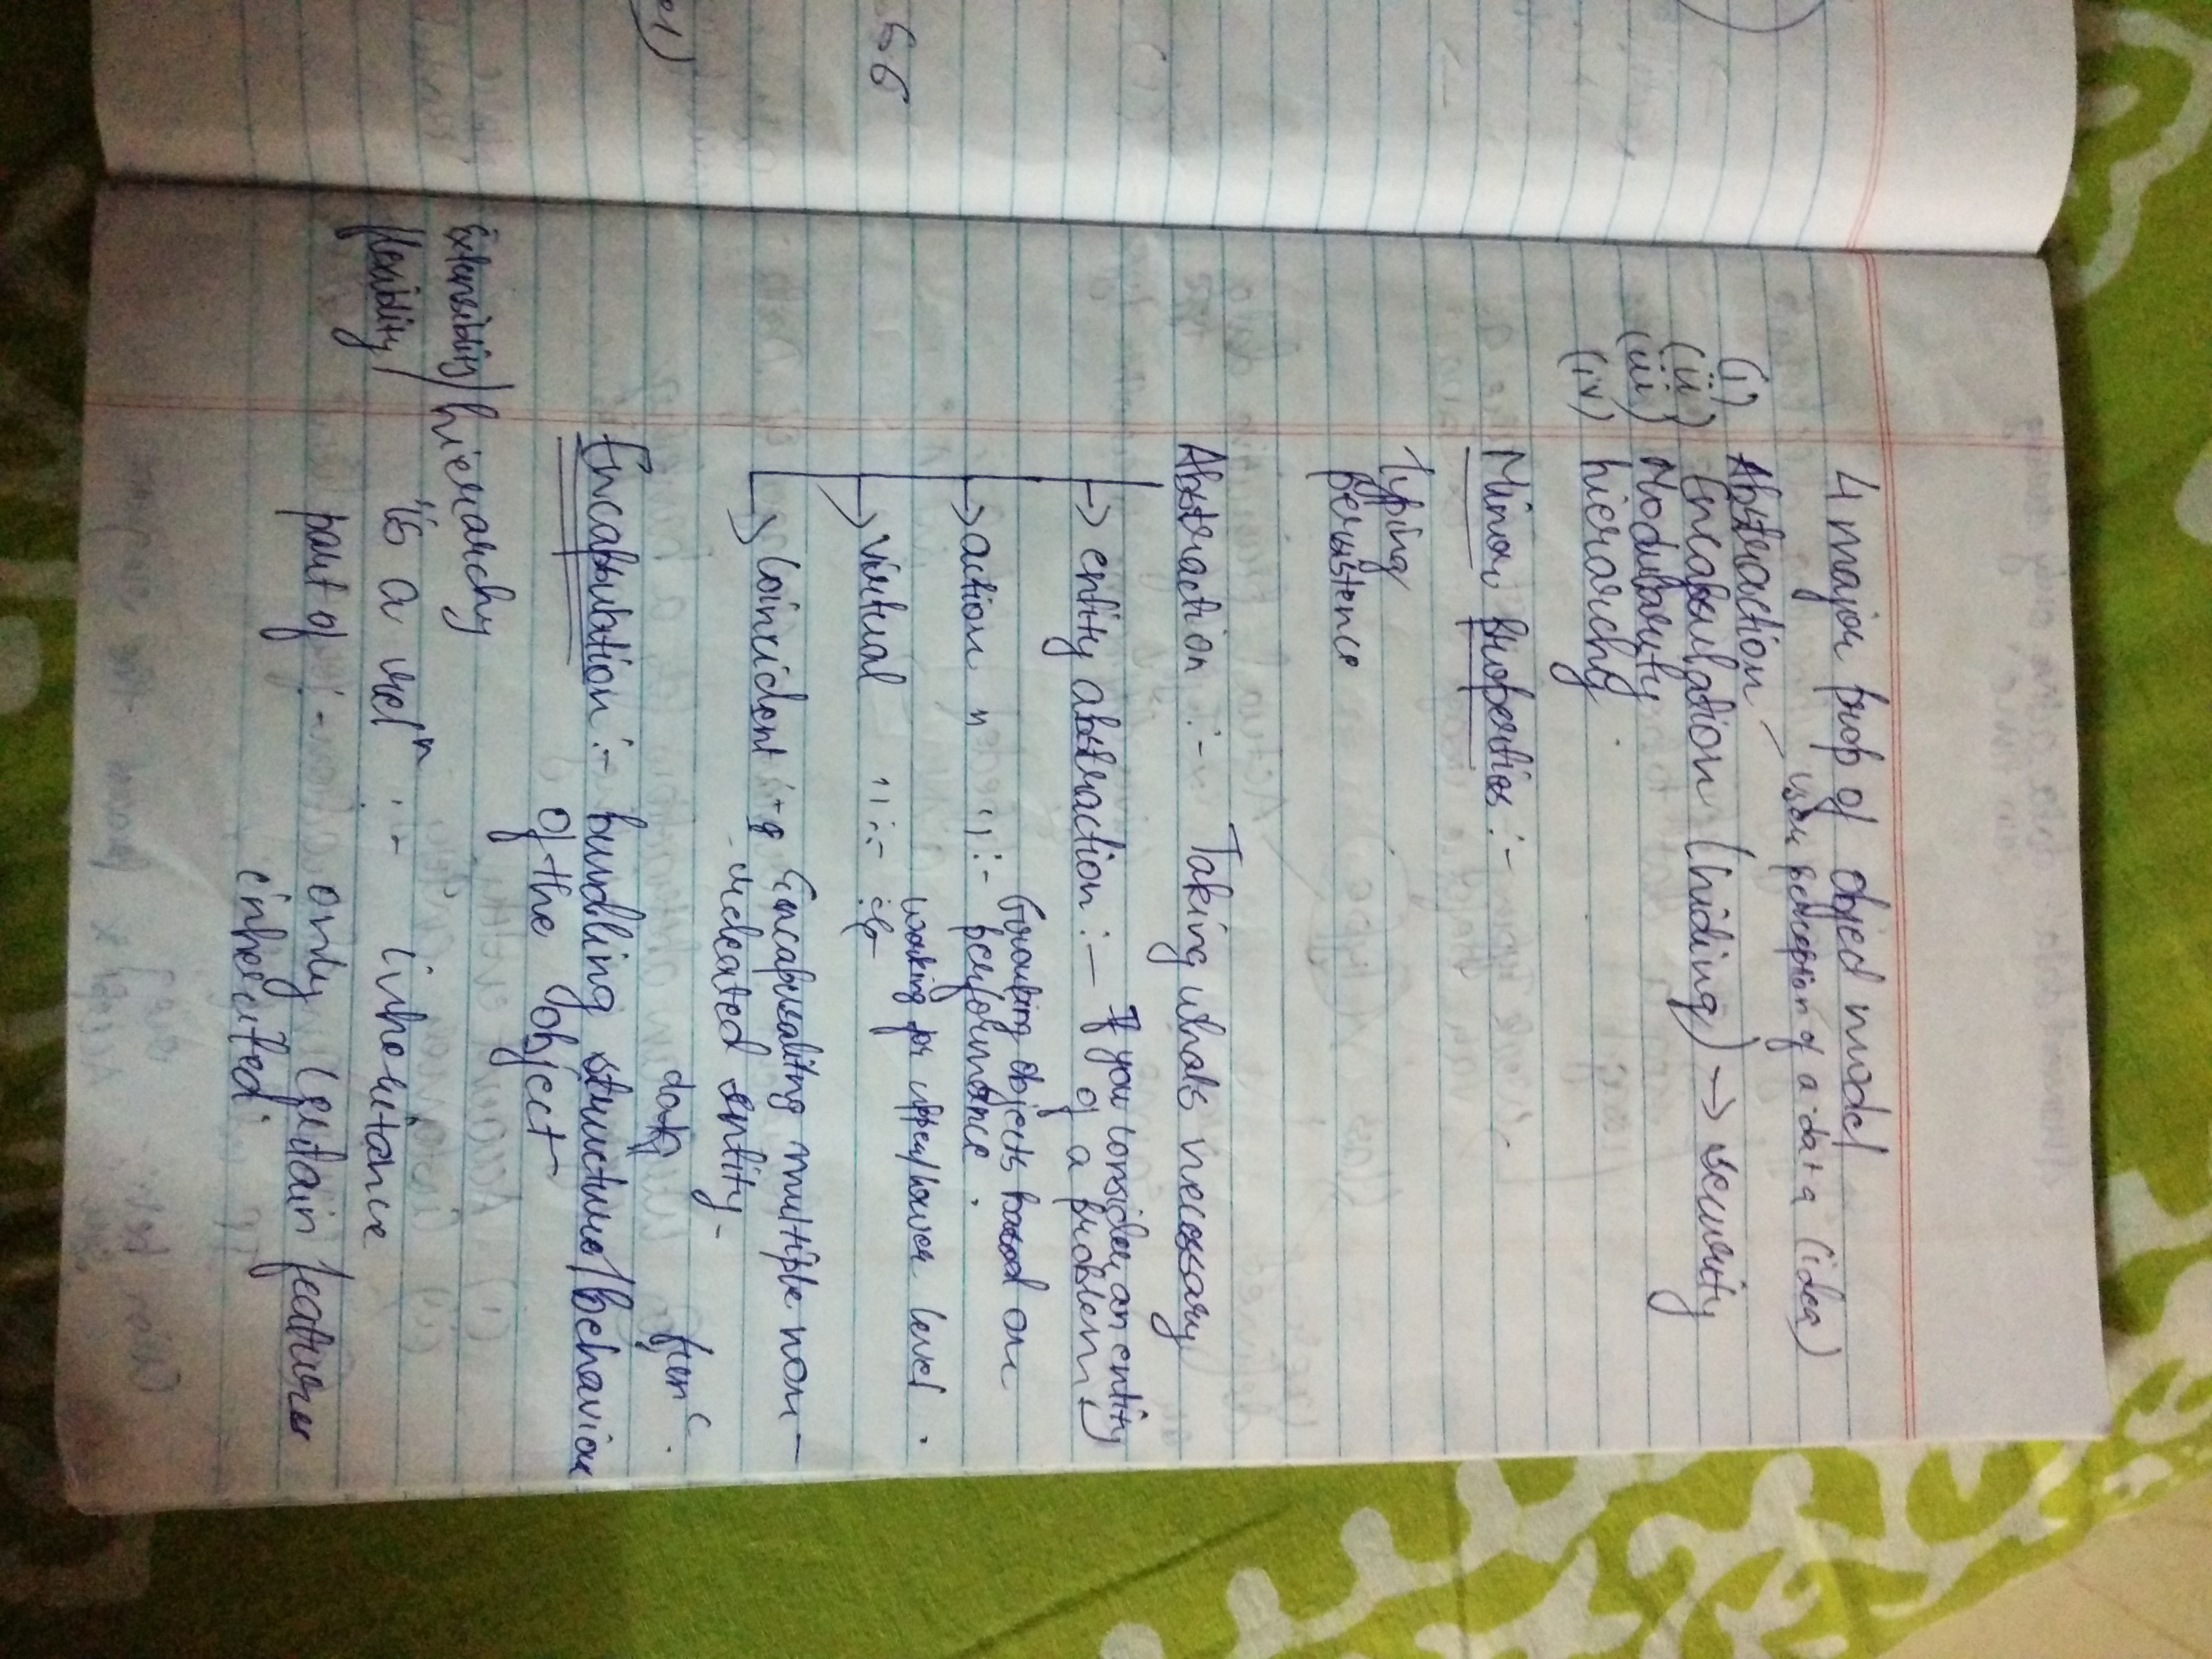 4 major prop of object model
user perception of a data (idea)
(i) Abstraction
(ii) Encapsulation (hiding) → security
(iii) Modularity
(iv) hierarchy
Minor properties :-
Typing
persistence
Abstraction :- Taking whats necessary
→ entity abstraction :- If you consider an entity
of a problem
→ action " " :- Grouping objects based on
performance .
→ virtual " :-
working for upper/lower level .
→ Coincident :- Encapsulating multiple non-
related entity -
data func .
Encapsulation :- bundling structure/behavior
of the object
Extensibility/
flexibility
hierarchy
is a relⁿ :- inheritance
part of - only certain features
inherited.
56